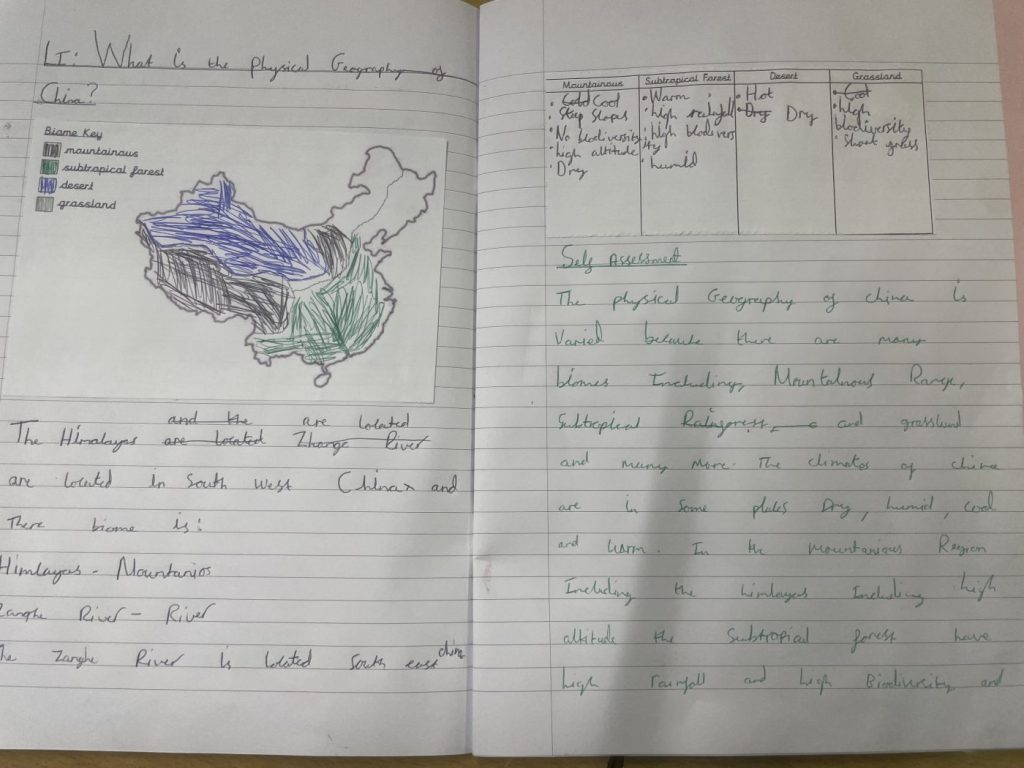 LI: What is the physical Geography of
China?
Biome Key
mountainous
subtropical forest
desert
grassland
and the are located
The Himalayas are located Zhange River
are located in South west China and
There biome is:
Himlayas - Mountanios
Zanghe River - River
The Zanghe River is located south east china
Mountainous Subtropical Forest Desert Grassland
• Cold Cool
• Steep Slopes
• No biodiversity
• high altitude
• Dry
• Warm
• high rainfall
• high biodivers
ity
• humid
• Hot
• Dry Dry
• Cool
• high
biodiversity
• Short grass
Self Assessment
The physical Geography of china is
Varied because there are many
biomes Including, Mountainous Range,
Subtropical and grassland
and many more. The climates of china
are in some places Dry, humid, cool
and warm. In the mountanious Region
Including the himlayas Including high
altitude the Subtropial forest have
high rainfall and high Biodiversity and